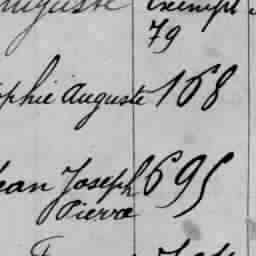 Auguste exempt
79
ophie Auguste 168
ean Joseph 695
Pierre